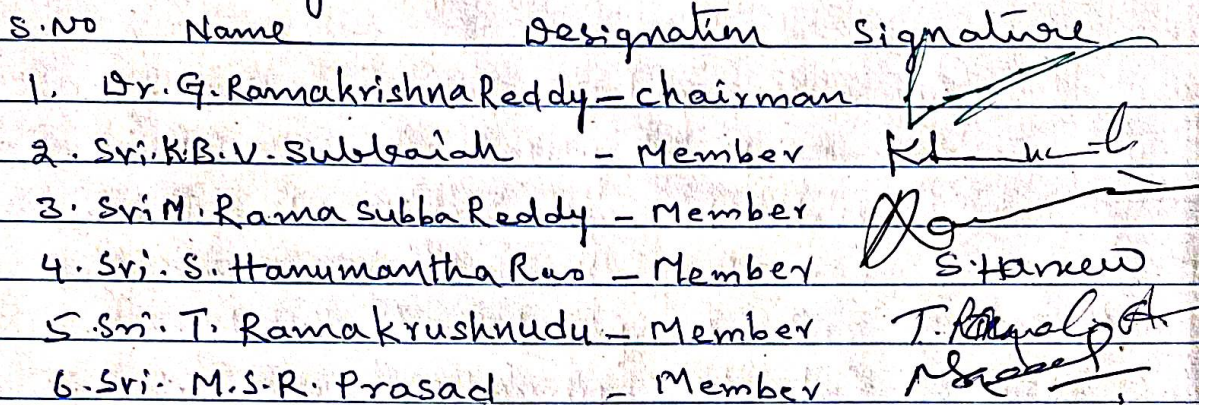 S.No Name Designation Signature
1. Dr. G. Ramakrishna Reddy – chairman
2. Sri. K.B.V. Subbaiah – Member
3. Sri M. Rama Subba Reddy – Member
4. Sri. S. Hanumantha Rao – Member
5. Sri. T. Ramakrushnudu – Member
6. Sri. M.S.R. Prasad – Member